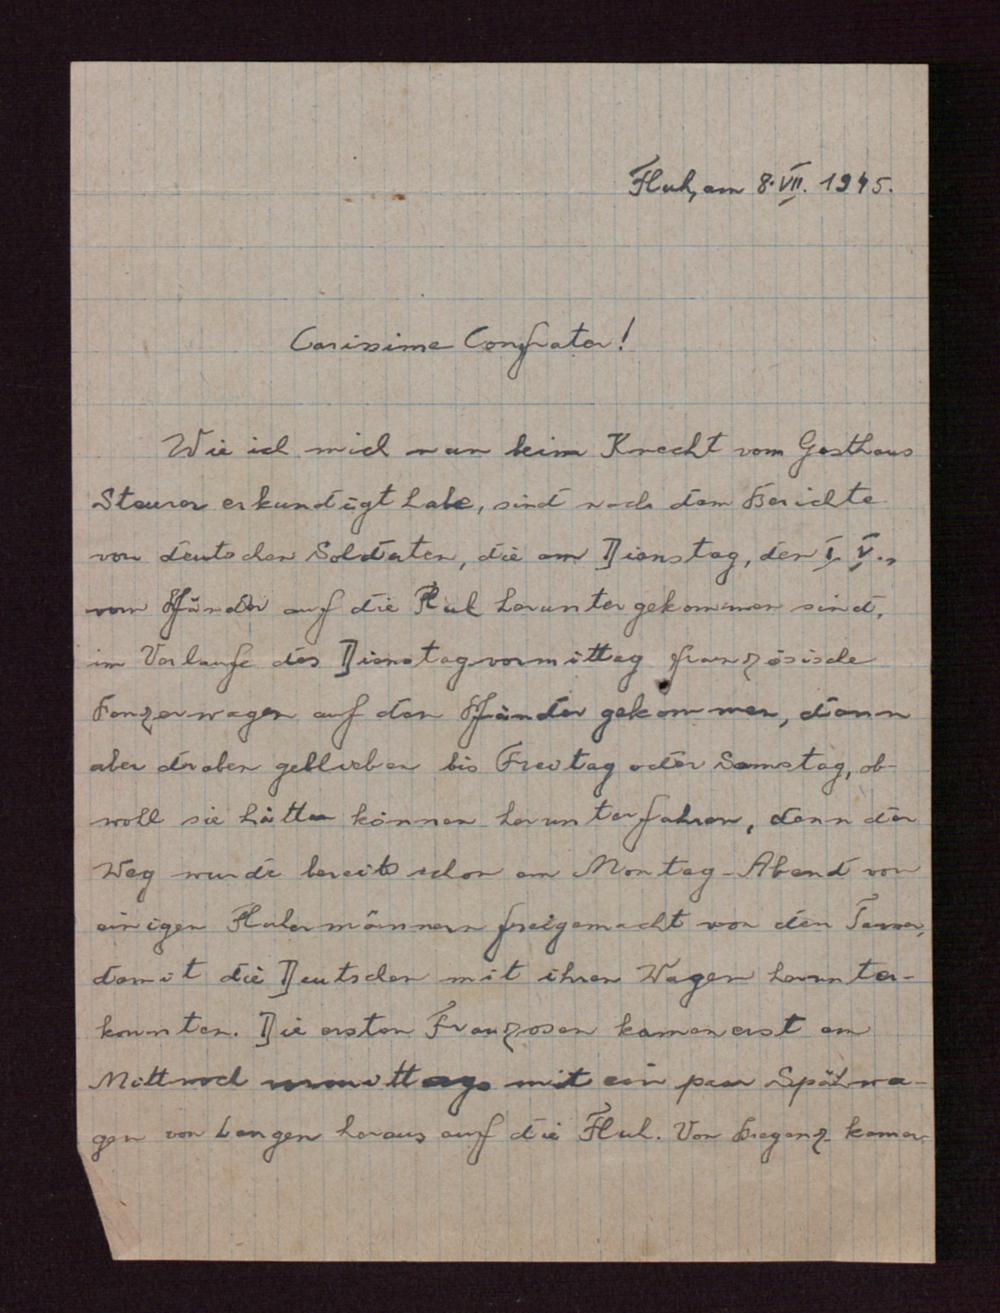 Fluh, am 8. VII. 1945.
Carissime Confrater!
Wie ich mich nun beim Knecht vom Gasthaus
Steurer erkundigt habe, sind nach dem Berichte
von deutschen Soldaten, die am Dienstag, den 1. V.,
vom Pfänder auf die Fluh heruntergekommen sind,
im Verlaufe des Dienstagvormittag französische
Panzerwagen auf den Pfänder gekommen, dann
aber droben geblieben bis Freitag oder Samstag, ob-
wohl sie hätten können herunterfahren, denn der
Weg wurde bereits schon am Montag-Abend von
einigen Fluhermännern freigemacht von den
damit die Deutschen mit ihren Wagen herunter-
konnten. Die ersten Franzosen kamen erst am
Mittwoch vormittags mit ein paar Spähwa-
gen von Langen heraus auf die Fluh. Von Bregenz kamen